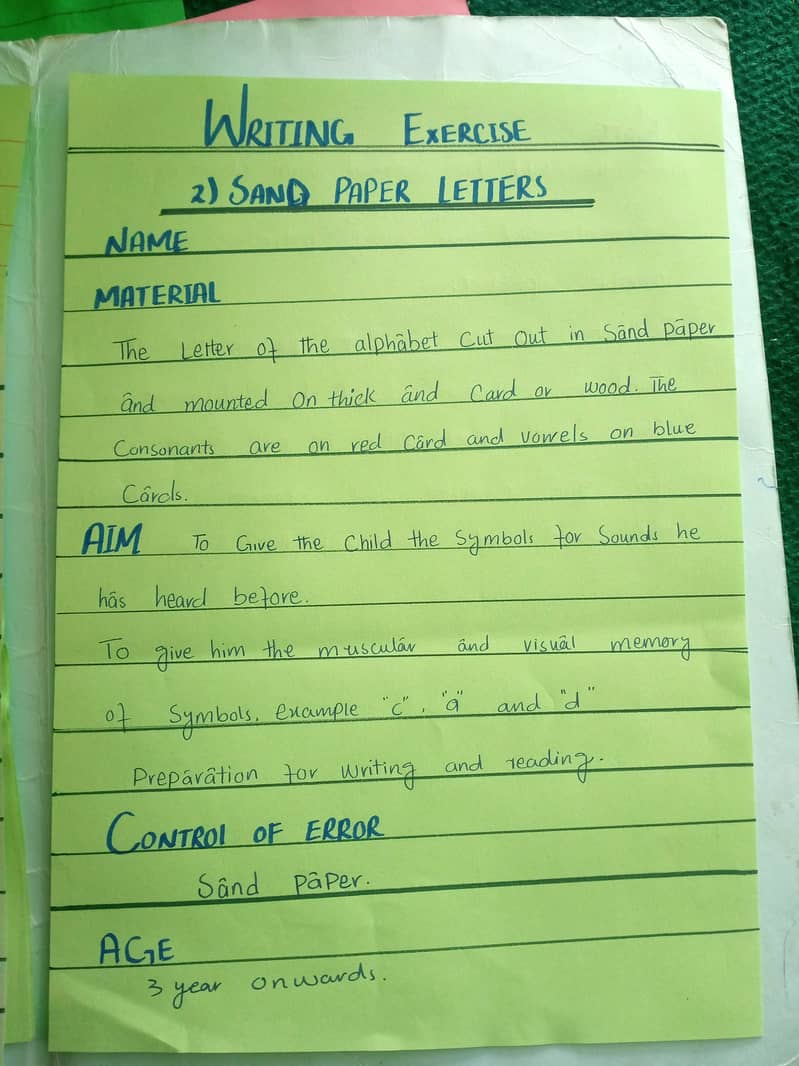 WRITING EXERCISE
2) SAND PAPER LETTERS
NAME
MATERIAL
The Letter of the alphâbet Cut Out in Sând pāper
ând mounted On thick ând Card or wood. The
Consonants are on red Cârd and vowels on blue
Cârds.
AIM To Give the Child the Symbols for Sounds he
hâs heard before.
To give him the musculâr ând visuâl memory
of Symbols. example "c", "a" and "d"
Prepârâtion for writing and reading.
CONTROl OF ERROR
Sând pâper.
AGE
3 year onwards.